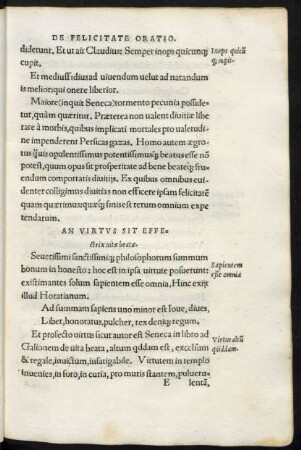 DE FELICITATE ORATIO.
didetunt. Et ut ait Claudius: Semper inops quicunq;
cupit.
Inops quicũ
q; cupit.
Et mediusfidius ad uiuendum uelut ad natandum
is melior: qui onere liberior.
Maiore (inquit Seneca) tormento pecunia posside-
tur, quàm quæritur. Præterea non ualent diuitiæ libe
rare à morbis, quibus implicati mortales pro ualetudi
ne impenderent Persicas gazas. Homo autem ægro-
tus q̃uis opulentissimus potentissimusq; beatus esse nõ
potest, quum opus sit prosperitate ad bene beateq; fru
endum comportatis diuitijs. Ex quibus omnibus eui
denter colligimus diuitias non efficere ipsam felicitatẽ
quam quærimus: quæq; finis est rerum omnium expe
tendarum.
AN VIRTVS SIT EFFE-
ctrix uitæ beatæ.
Seuerissimi sanctissimiq; philosophorum summum
bonum in honesto: hoc est in ipsa uirtute posuerunt:
existimantes solum sapientem esse omnia, Hinc exijt
illud Horatianum.
Sapientem
esse omnia
Ad summam sapiens uno minor est Ioue, diues,
Liber, honoratus, pulcher, rex deniq; regum.
Et profecto uirtus sicut autor est Seneca in libro ad
Gallionem de uita beata, altum qddam est, excelsum
& regale, inuictum, infatigabile. Virtutem in templo
inuenies, in foro, in curia, pro muris stantem, puluеru-
Virtus altũ
quiddam.
E
lentã,